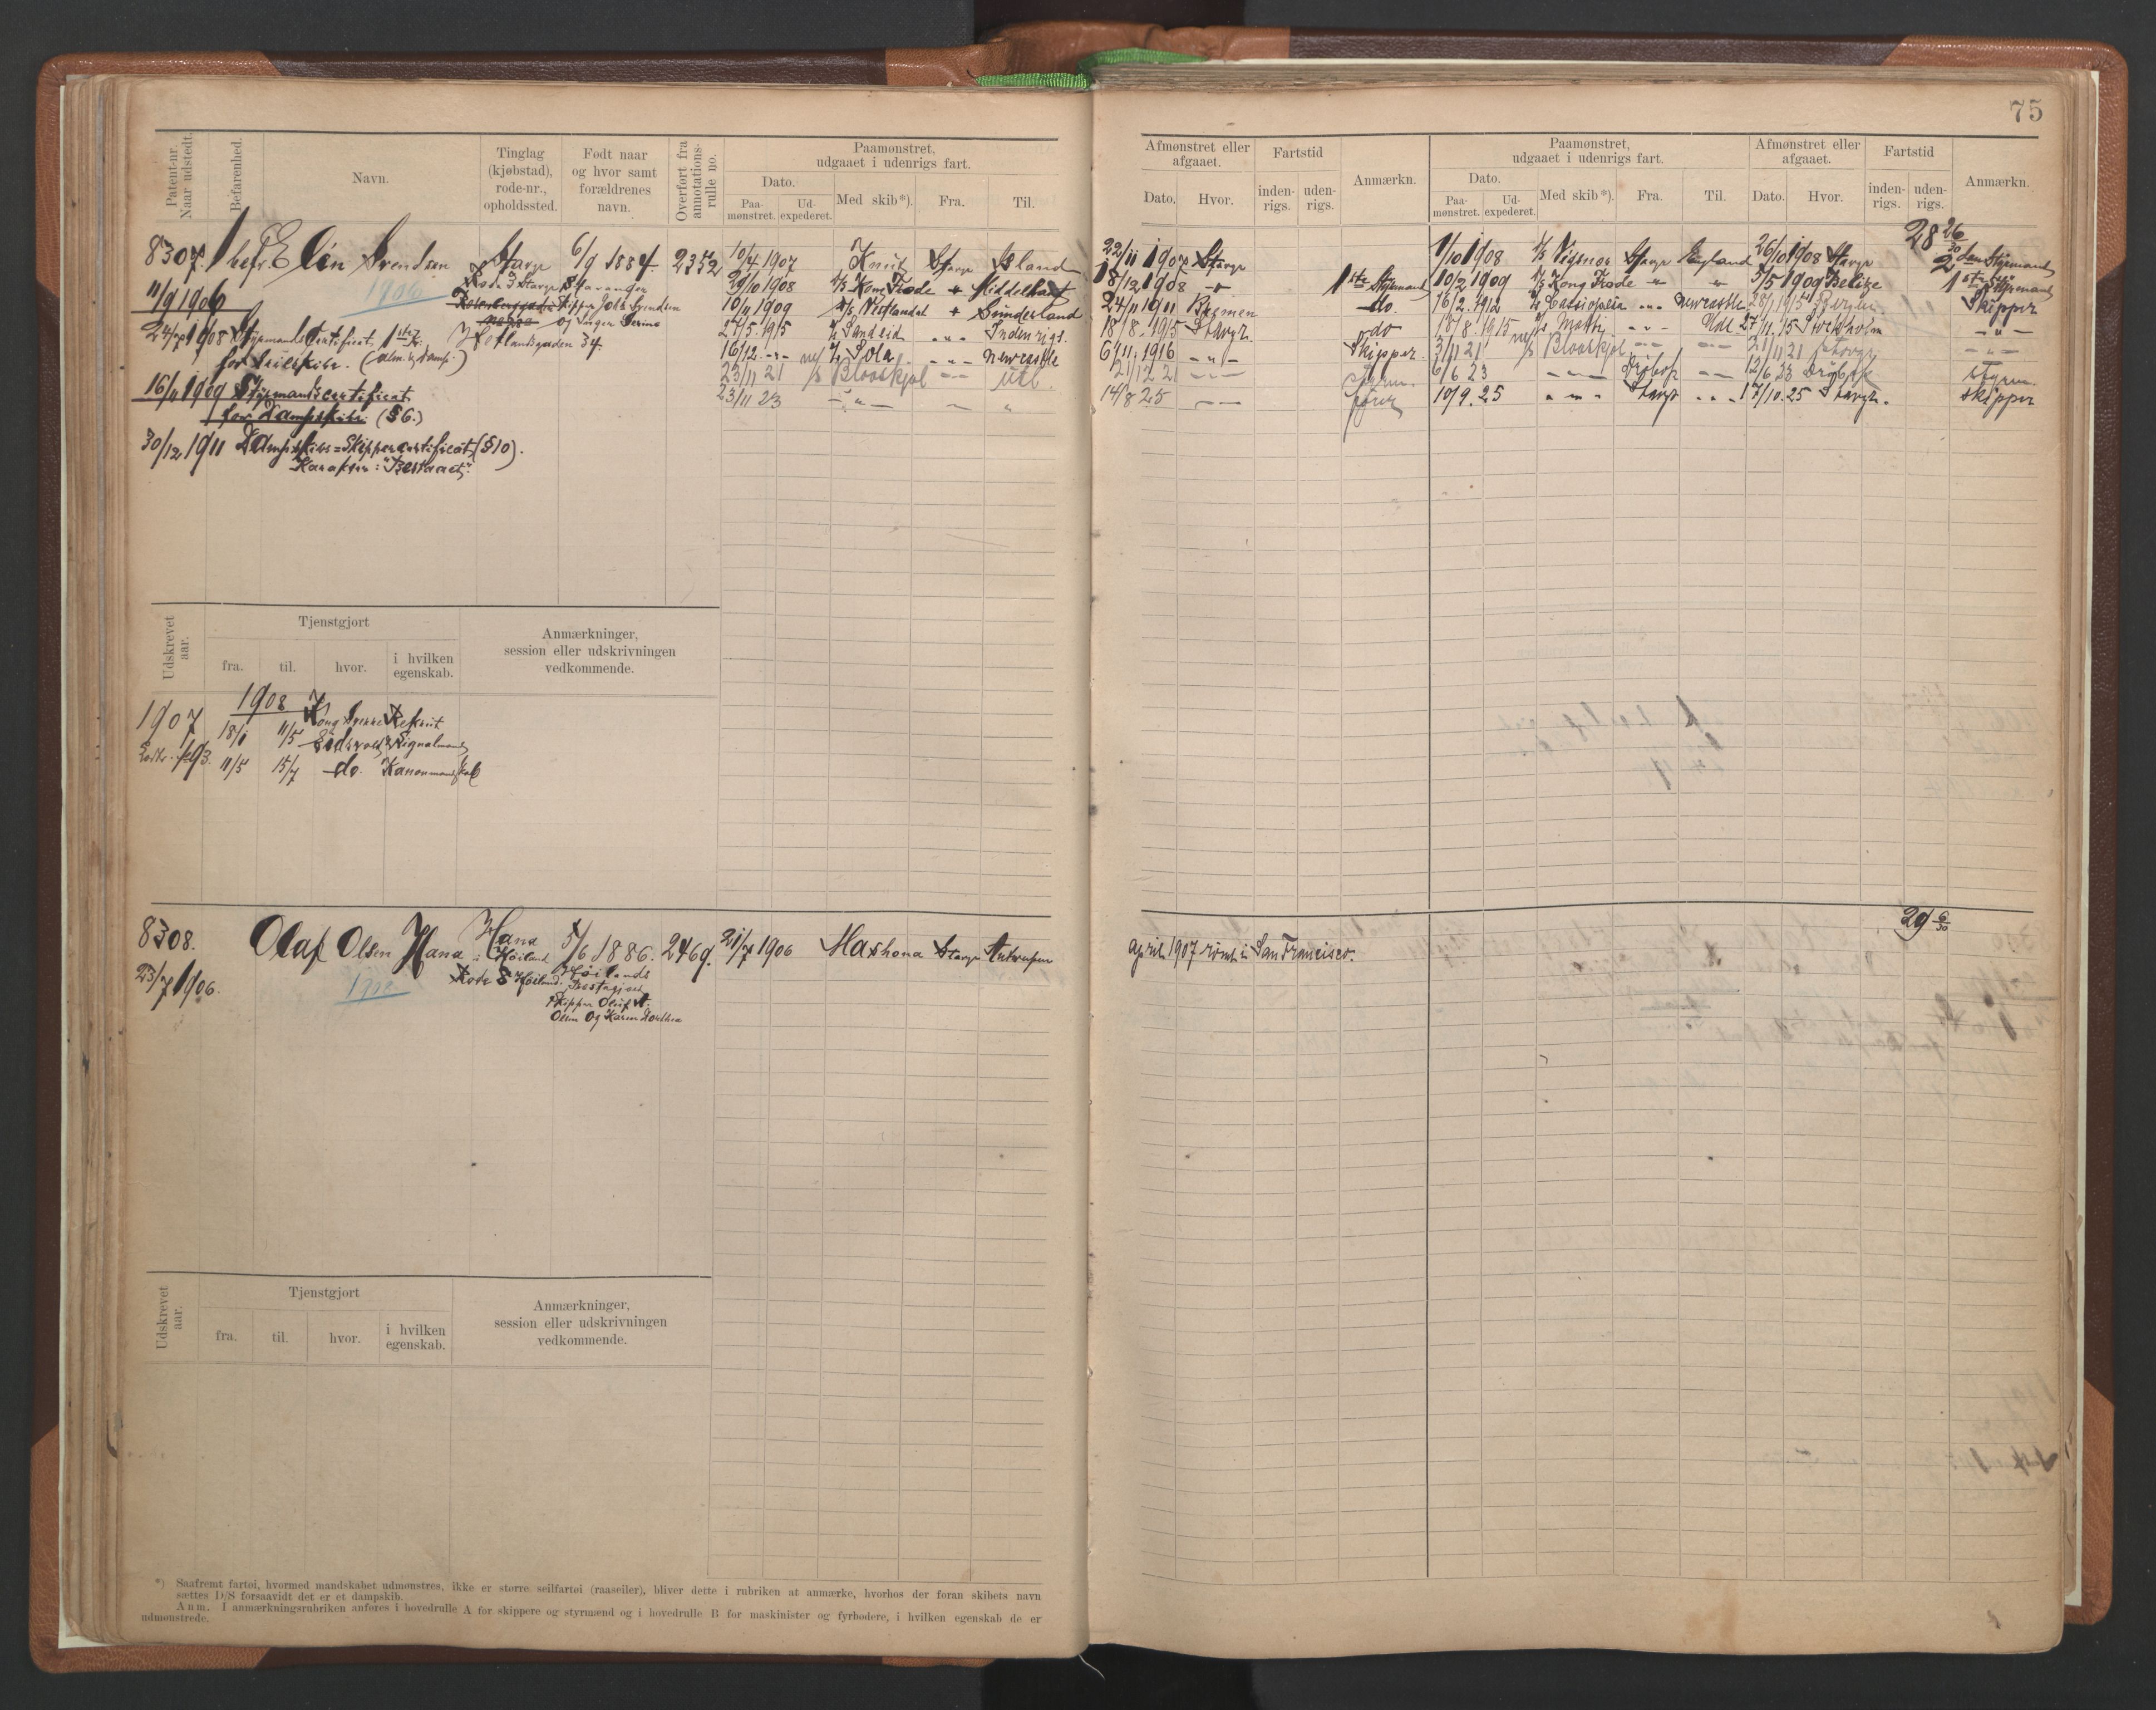 75
Patent-nr. Naar udstedt.
Befarenhed.
Navn.
Tinglag (kjøbstad), rode-nr., opholdssted.
Født naar og hvor samt forældrenes navn.
Overført fra annotations-rulle no.
Paamønstret, udgaaet i udenrigs fart.
Dato.
Paa-mønstret.
Ud-expederet.
Med skib*).
Fra.
Til.
Afmønstret eller afgaaet.
Dato.
Hvor.
Fartstid
inden-rigs.
uden-rigs.
Anmærkn.
Paamønstret, udgaaet i udenrigs fart.
Dato.
Paa-mønstret.
Ud-expederet.
Med skib*).
Fra.
Til.
Afmønstret eller afgaaet.
Dato.
Hvor.
Fartstid
inden-rigs.
uden-rigs.
Anmærkn.
28 26/30
8307. 1 befr. Elin Svendsen Stavgr 6/9 1884 2352
Rode 3 Stavgr Stavanger
11/9 1906
1906
Skipper Johs Svendsen
og Serine
24/7 1908 Styrmandscertificat 1ste Kl.
Hetlandsgaden 34.
for Seilskibe.
16/11 1909 Styrmandscertificat
for Dampskibe (§6.)
30/12 1911 Dampskibs=Skippercertificat (§10).
Karakter: "Bestaaet".
10/4 1907 Knut Stavgr Island 22/11 1907 Stavgr
29/10 1908 D/S Kong Frode " Middelhavet 18/12 1908 " 1ste Styrmand
10/11 1909 D/S Vestlandet " Sünderland 24/11 1911 Bremen do.
27/5 1915 Sandeid " " Indenrigs. 18/8 1915 Stavgr. do
16/12 " " Sola " " Newcastle 6/11 1916 " " Skipper.
23/11 21 Blaaskjol " " Utl. 21/12 21 " " Styrm.
23/11 23 " " " " 14/8 25 " " fører
1/10 1908 D/S Vigsnes Stavgr England 26/10 1908 Stavgr 2den Styrmand
10/2 1909 D/S Kong Frode " " 5/5 1909 Belize 1ste Styrmand
16/2 1912 Cassiopeia " " Newcastle 28/1 1915 Bergen. Skipper
18/8 1915 " " Udl 27/11 15 Stockholm " "
3/11 21 Blaaskjol " " " " 21/11 21 Stavgr " "
6/6 23 " " Drøbak " " 12/6 23 Drøbak Styrm.
10/9. 25 " " Stavgr " " 17/10. 25 Stavgr. Skipper
Udskrevet aar.
Tjenstgjort
fra.
til.
hvor.
i hvilken egenskab.
Anmærkninger, session eller udskrivningen vedkommende.
1908
1907 Kong Sverre Rekrut
18/1 11/5 Eidsvold Signalmand
11/5 15/7 do. Kanonmandskab
29 6/30
8308. Olaf Olsen Hana Hana 5/6 1886. 2469. 21/7 1906 Mashona Stavgr Antwerpen april 1907 rømt i San Francisco.
i Høiland
23/7 1906.
Rode 8 Høiland. Høilands
Prestegjeld
Skipper Oluf A.
Olsen og Karen Dorthea
Udskrevet aar.
Tjenstgjort
fra.
til.
hvor.
i hvilken egenskab.
Anmærkninger, session eller udskrivningen vedkommende.
*) Saafremt fartøi, hvormed mandskabet udmønstres, ikke er større seilfartøi (raaseiler), bliver dette i rubriken at anmærke, hvorhos der foran skibets navn
sættes D/S forsaavidt det er et dampskib.
Anm. I anmærkningsrubriken anføres i hovedrulle A for skippere og styrmænd og i hovedrulle B for maskinister og fyrbødere, i hvilken egenskab de er
udmønstrede.